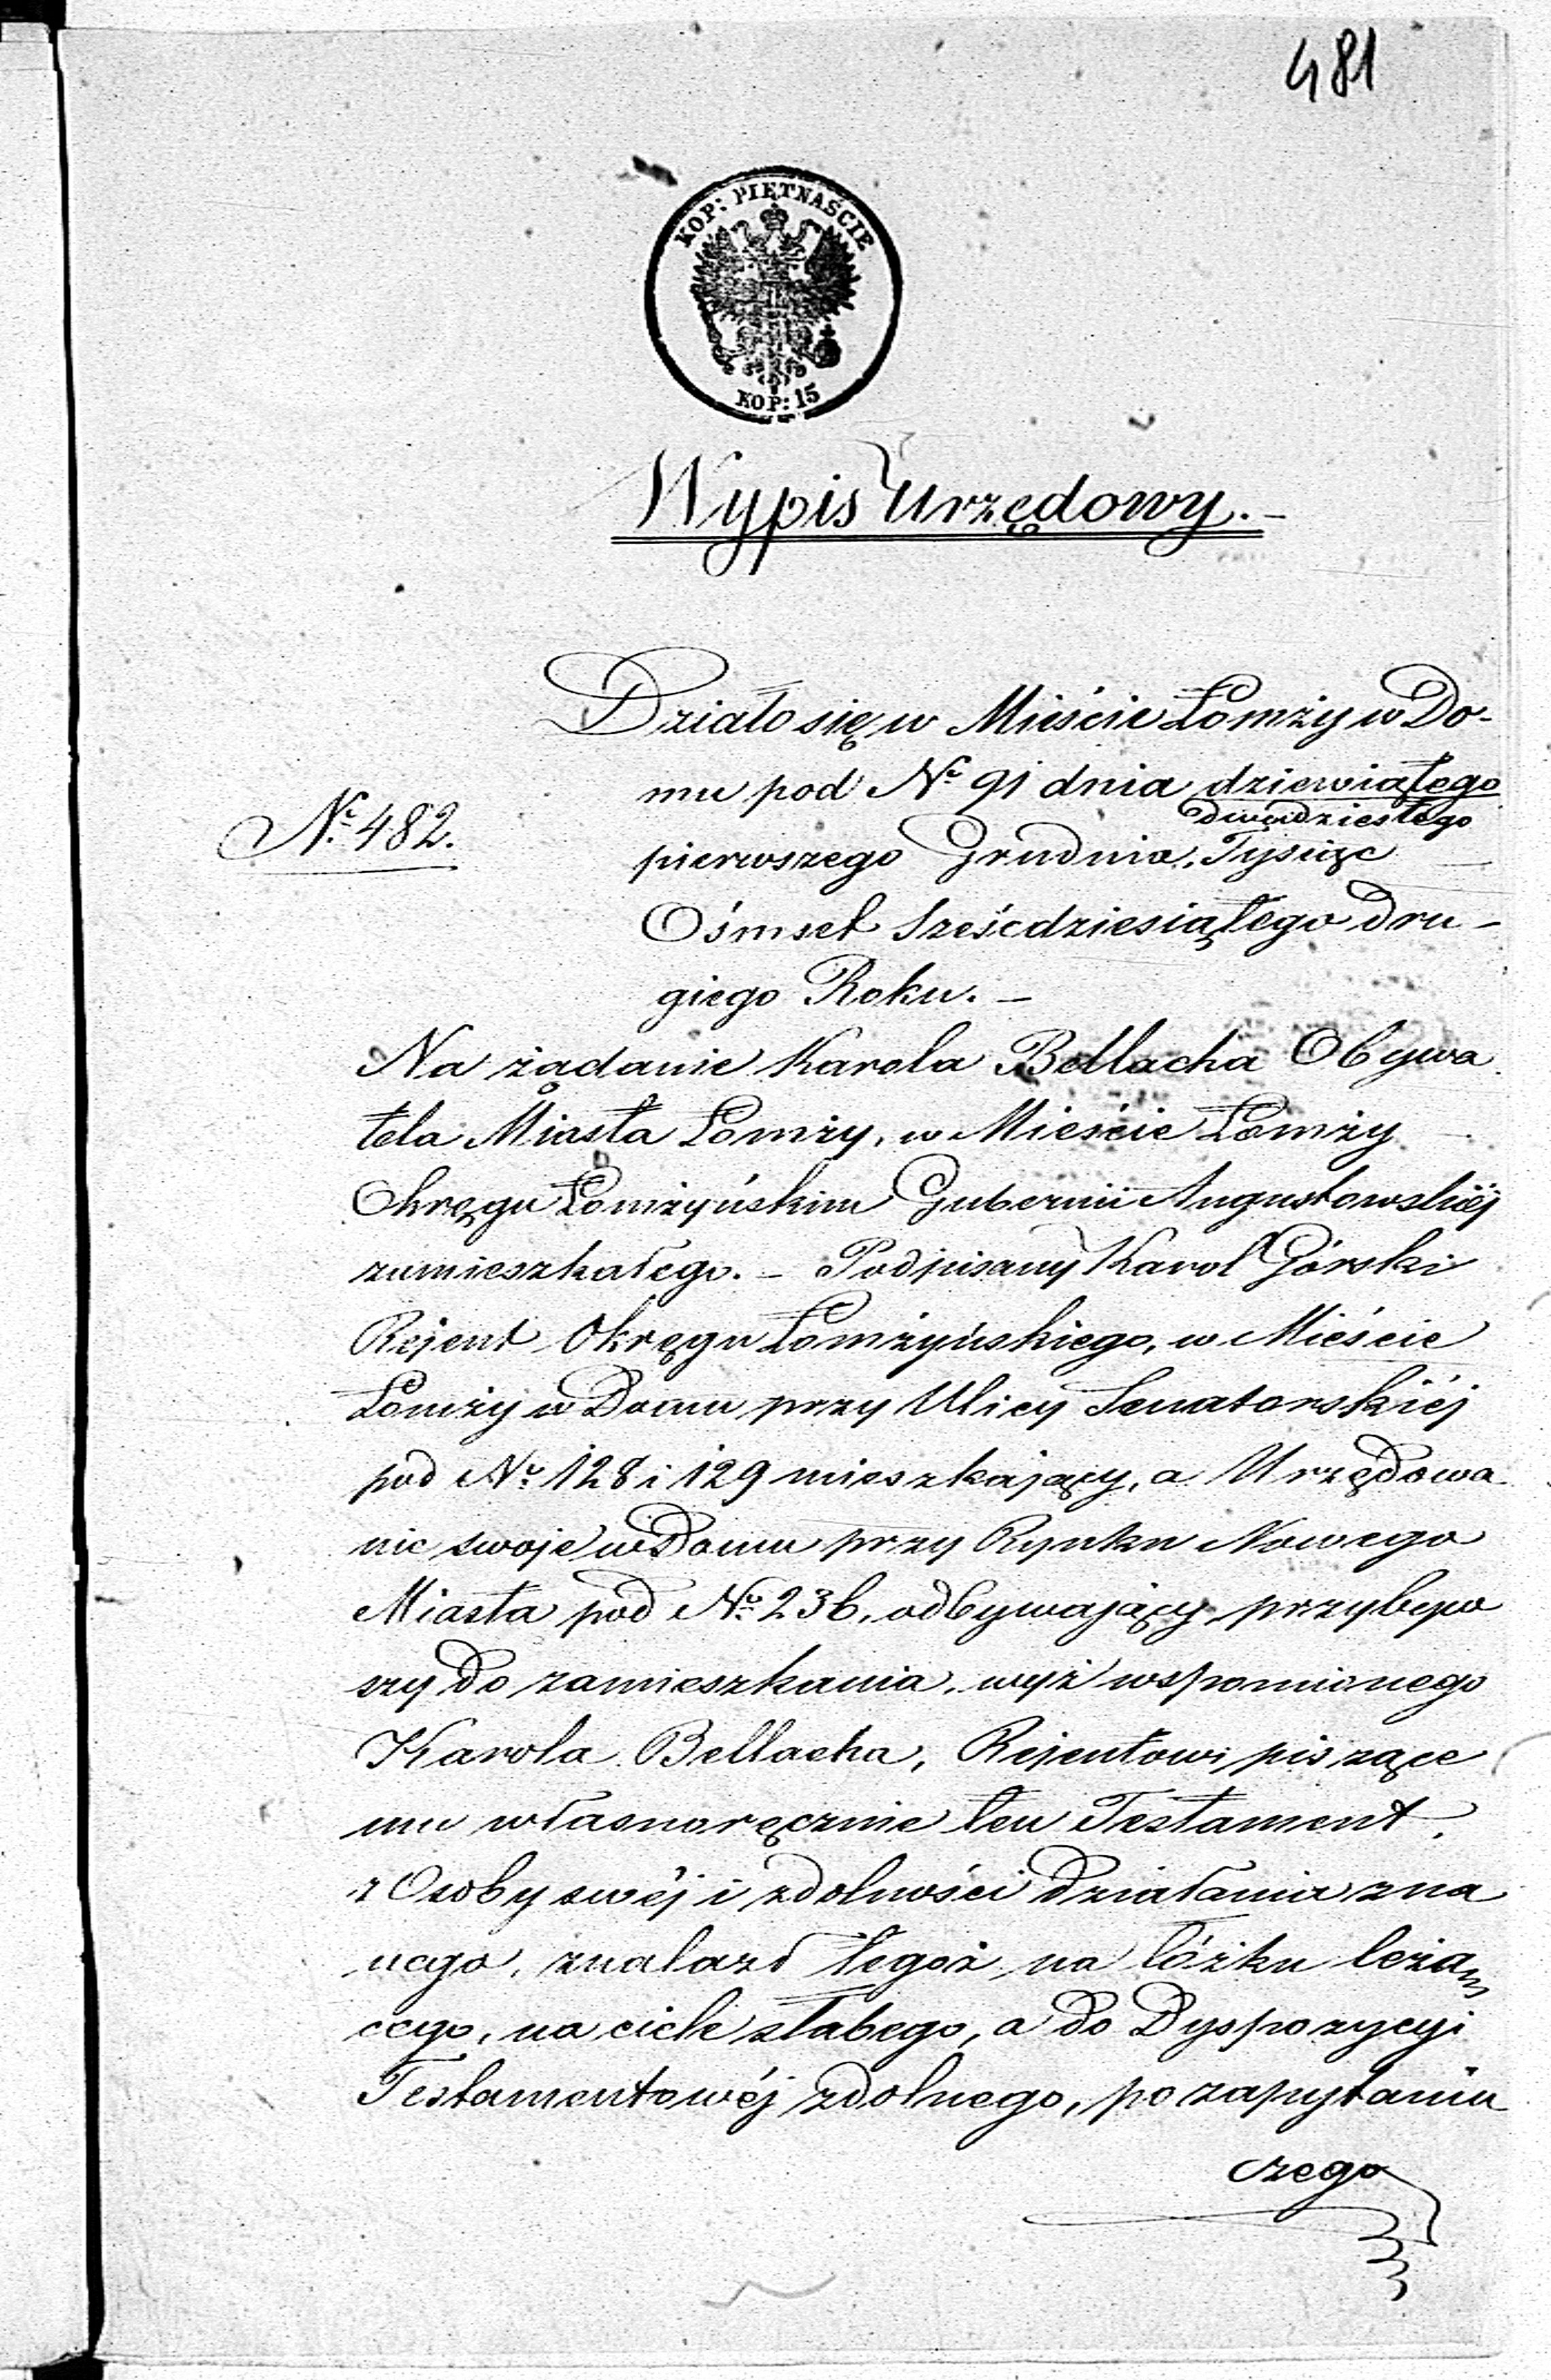 481
KOP: PIĘTNAŚCIE
KOP: 15
Wypis Urzędowy.–
Działo się w Mieście Łomży w Do-
mu pod No 91 dnia dziewiątego
dwudziestego
No 482.
pierwszego Grudnia, Tysiąc
Ośmset Sześćdziesiątego Dru-
giego Roku. –
Na żądanie Karola Bellacha Obywa
tela Miasta Łomży, w Mieście Łomży
Okręgu Łomżyńskim Gubernii Augustowskiéj
zamieszkałego. – Podpisany Karol Górski
Rejent Okręgu Łomżyńskiego, w Mieście
Łomży w Domu przy Ulicy Senatorskiéj
pod No 128 i 129 mieszkający, a Urzędowa
nie swoje w Domu przy Rynku Nowego
Miasta pod No 236, odbywający, przybyw
szy do zamieszkania, wyż wspomionego
Karola Bellacha, Rejentowi piszące
mu własnoręcznie ten Testament,
z Osoby swéj i zdolności działania zna
nego, znalazł tegoż na łóżku leżą
cego, na ciele słabego, a do Dyspozycyi
Testamentowéj zdolnego, po zapytaniu
czego